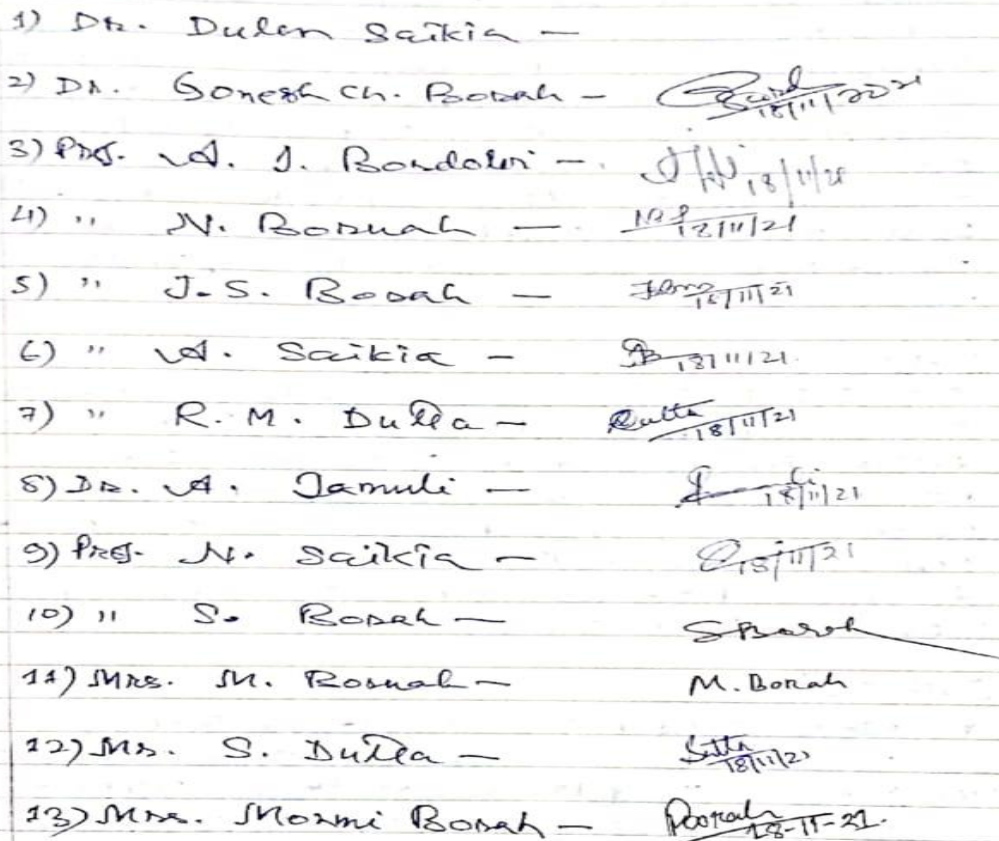 1) Dr. Dulen Saikia —
2) Dr. Gonesh Ch. Borah — 18/11/2021
3) Prof. A. J. Bordoloi — 18/11/21
4) " N. Boruah — 18/11/21
5) " J. S. Borah — 18/11/21
6) " A. Saikia — 18/11/21.
7) " R. M. Dutta — Dutta 18/11/21
8) Dr. A. Jamuli — 18/11/21
9) Prof. N. Saikia — 18/11/21
10) " S. Borah — SBorah
11) Mrs. M. Boruah — M. Borah
12) Mr. S. Dutta — 18/11/21
13) Mrs. Mormi Borah — 18-11-21.